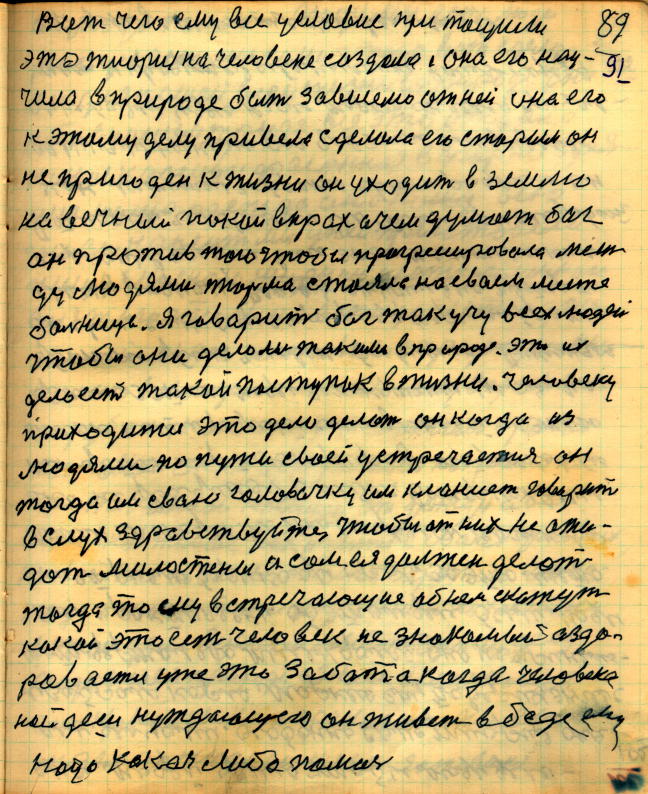 Вот чего ему все условие притащили 89
это теория на человеке создала, она его нау- 91
чила в природе быт зависемо от ней она его
к этому делу привела сделала его старим он
не пригоден к жизни он уходит в землю
на вечний покой в прах а чем думает бог
он против того чтобы прогресировала меж
ду людями тюрма стояла на сваем месте
болница. Я говарит бог так учу всех людей
чтобы они делоли таким в природе. это их
дело ест такой поступок в жизни. человеку
приходится это дело делат он когда из
людями по пути своей устречается он
тогда им сваю головачку им кланиет говарит
в слух здравствуйте, чтобы от них не ожи-
дат милостены а сам ея должен делат
тогда то ему встречающие об нем скажут
какой это ест человек не знакомый а здо-
ровается уже это забота когда человека
найдеш нуждающего он живет в беде ему
надо какая либо помоч